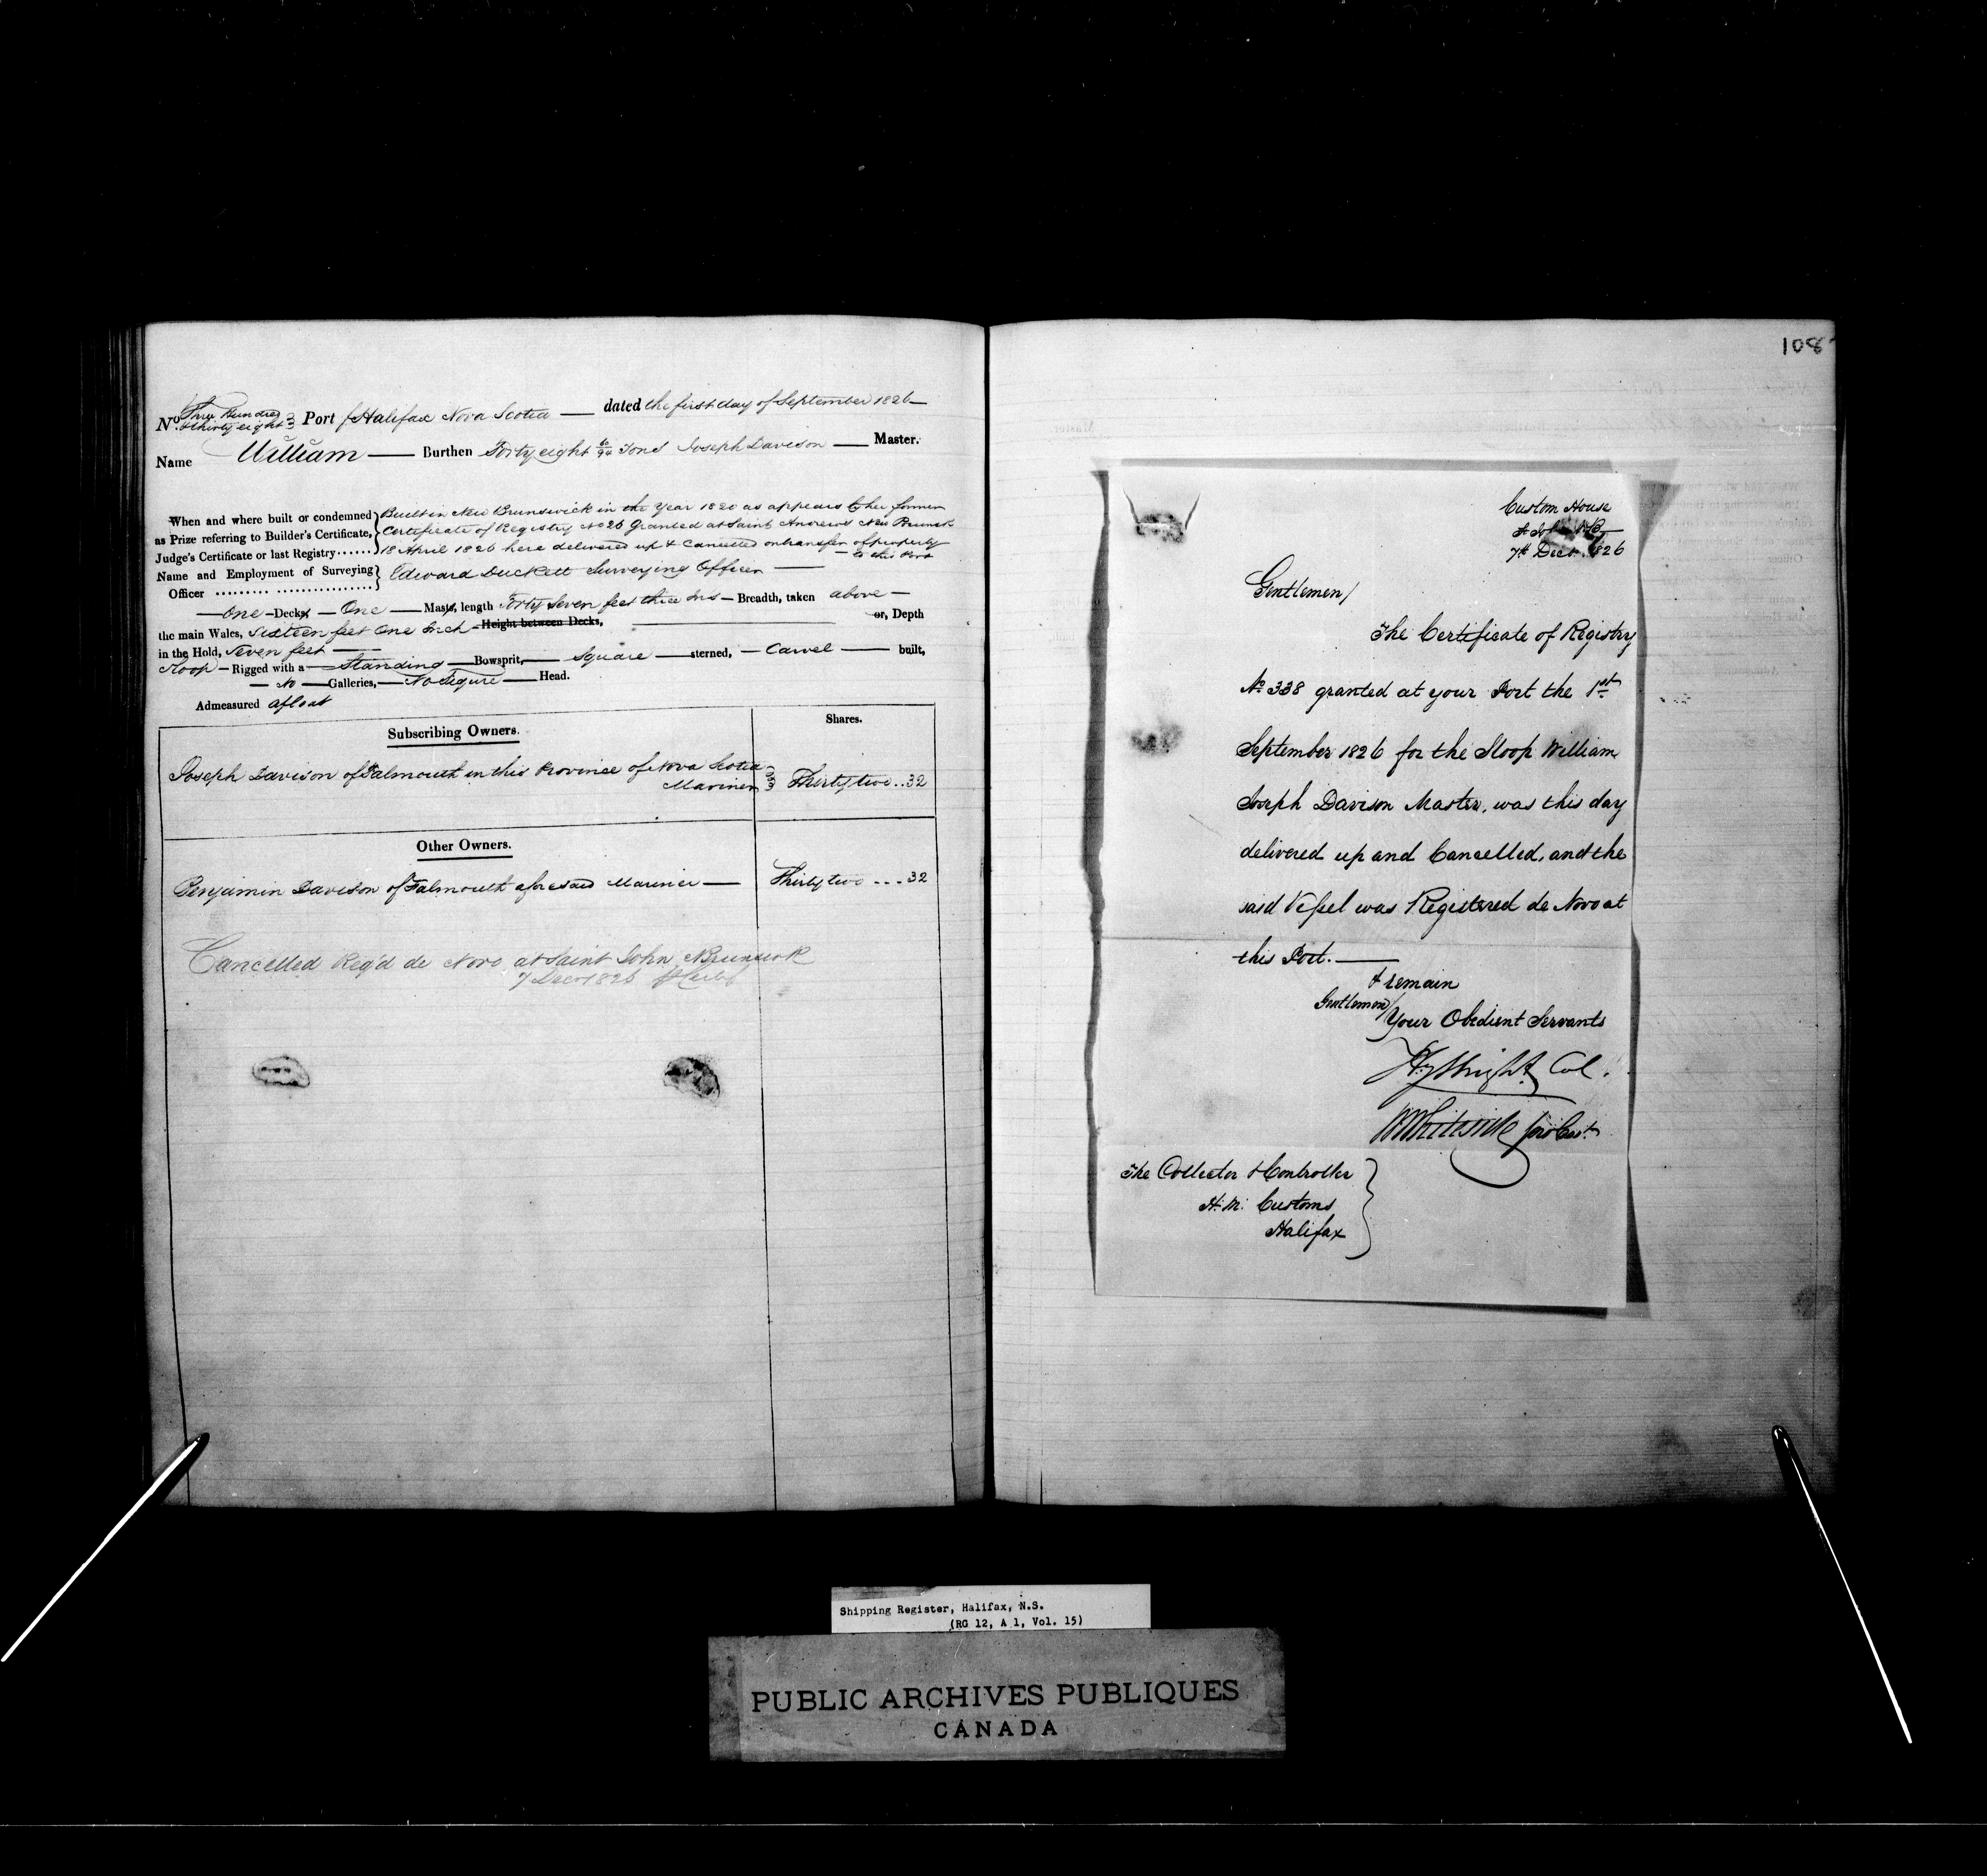 No. Three Hundred & thirty eight Port of Halifax Nova Scotia — dated the first day of September 1826 —
Name William — Burthen Forty eight 6/94 Tons Joseph Davison — Master.
When and where built or condemned as Prize referring to Builder's Certificate, Judge's Certificate or last Registry...... } Built in New Brunswick in the Year 1820 as appears by her former
Certificate of Registry No 26 Granted at Saint Andrews New Brunsk
18 April 1826 here delivered up & Cancelled on transfer of property
— to this Port
Name and Employment of Surveying Officer ......... ................ } Edward Duckett Surveying Officer —
— One — Decks — One — Masts, length Forty Seven feet three Ins — Breadth, taken above —
the main Wales, Sixteen feet One Inch — Height between Decks, — or, Depth
in the Hold, Seven feet —
Sloop — Rigged with a — Standing — Bowsprit, — Square — sterned, — Carvel — built,
— No — Galleries, — No Figure — Head.
Admeasured afloat
Subscribing Owners.
Shares.
Joseph Davison of Falmouth in this Province of Nova Scotia
Mariner
Thirty two .. 32
Other Owners.
Benjamin Davison of Falmouth aforesaid Mariner —
Thirty two ... 32
Cancelled Reg'd de Novo at Saint John N Brunswk
7 Decr 1826
108
Custom House
St John NB
7th Decr. 1826
Gentlemen/
The Certificate of Registry
No. 338 granted at your Port the 1st
September 1826 for the Sloop William
Joseph Davison Master, was this day
delivered up and Cancelled, and the
said Vessel was Registered de Novo at
this Port. —
I remain
Gentlemen/
Your Obedient Servants
Hy Wright Col.
W Whiteside
The Collector & Controller
H. M. Customs
Halifax
Shipping Register, Halifax, N.S.
(RG 12, A 1, Vol. 15)
PUBLIC ARCHIVES PUBLIQUES
CANADA